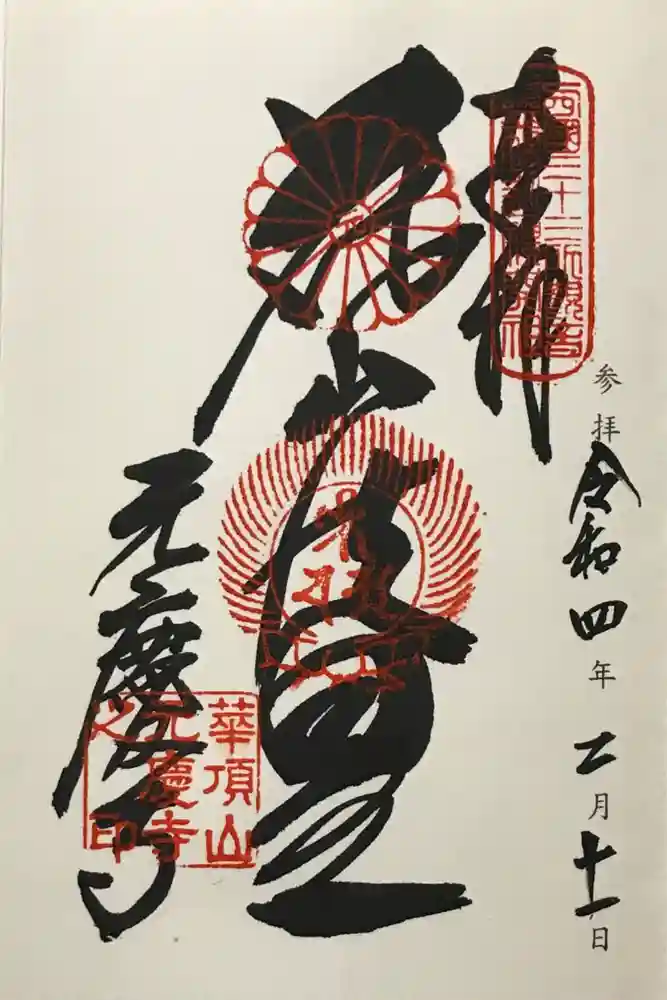 参拝 令和四年 二月 十一日
奉拝
西國三十三所観音
花山法皇
元慶寺
華頂山
元慶寺
之印